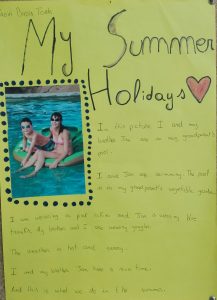 My Summer
Holidays
In this picture I and my
brother Jan are in my grandparent's
pool.
I and Jan are swimming. The pool
is in my grandparent's vegetable garden.
I am wearing a pink bikini and Jan is wearing blue
and I are wearing goggles.
The weather is hot and sunny.
I and my brother Jan have a nice time.
And this is what we do in the summer.